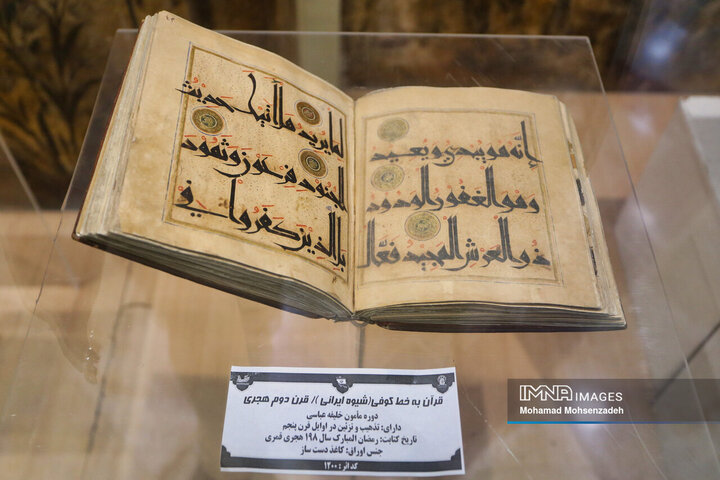 إنه هو يبدئ و يعيد
وهو الغفور الودود
ذو العرش المجيد فعال
لما يريد هل أتيك حديث
الجنود فرعون وثمود
بل الذين كفروا في
قرآن به خط کوفی(شیوه ایرانی )/ قرن دوم هجری
دوره مأمون خلیفه عباسی
دارای: تذهیب و تزئین در اوایل قرن پنجم
تاریخ کتابت: رمضان المبارک سال ۱۹۸ هجری قمری
جنس اوراق: کاغذ دست ساز
کد اثر: ۱۲۰۰
IMNA IMAGES
Mohamad Mohsenzadeh